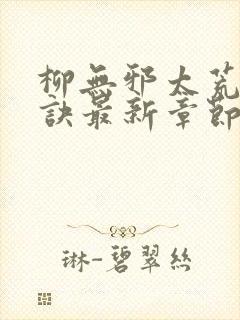 柳無邪太荒
訣最新章節
琳-碧翠絲